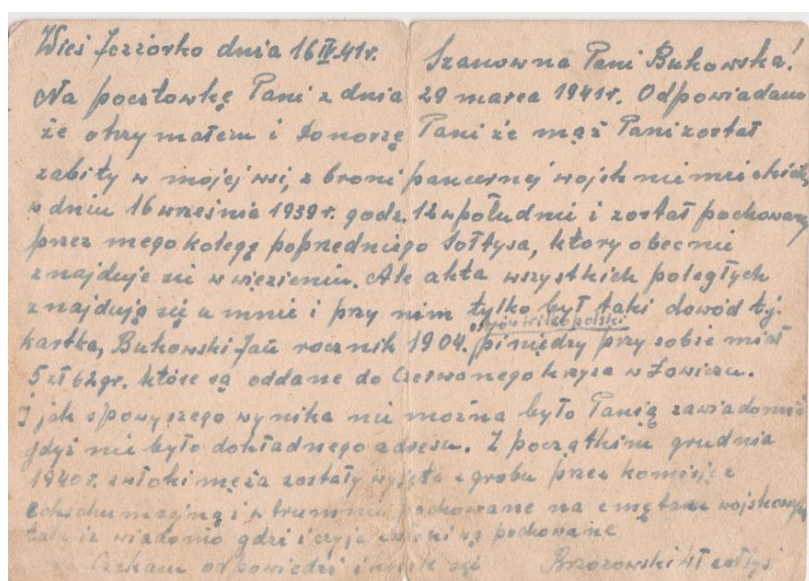 Wieś Jeziorko dnia 16 IV 41r. Szanowna Pani Bukowska!
Na pocztowkę Pani z dnia 29 marca 1941r. Odpowiadam
że otrzymałem i donoszę Pani że mąż Pani został
zabity w mojej wsi, z broni pancernej wojsk
w dniu 16 września 1939r. godz. 12 w południe i został pochowany
przez mego kolegę poprzedniego Sołtysa, ktory obecnie
znajduje się w więzieniu. Ale akta wszystkich poległych
znajdują się u mnie i przy nim tylko był taki dowód tj.
kartka, Bukowski Jań rocznik 1904. pieniędzy przy sobie miał
5 zł 62 gr. które są oddane do Czerwonego krzyża w Łowiczu.
I jak z powyszego wynika nie można było Panią zawiadomić
gdyż nie było dokładnego adresu. Z początkiem grudnia
1940r. zwłoki męża zostały wyjęte z grobu przez komisję
i w trumnie pochowane na cmętarz
tak iż wiadomo gdzie i czyje zwłoki są pochowane
Czekam odpowiedzi i Brzozowski sołtys